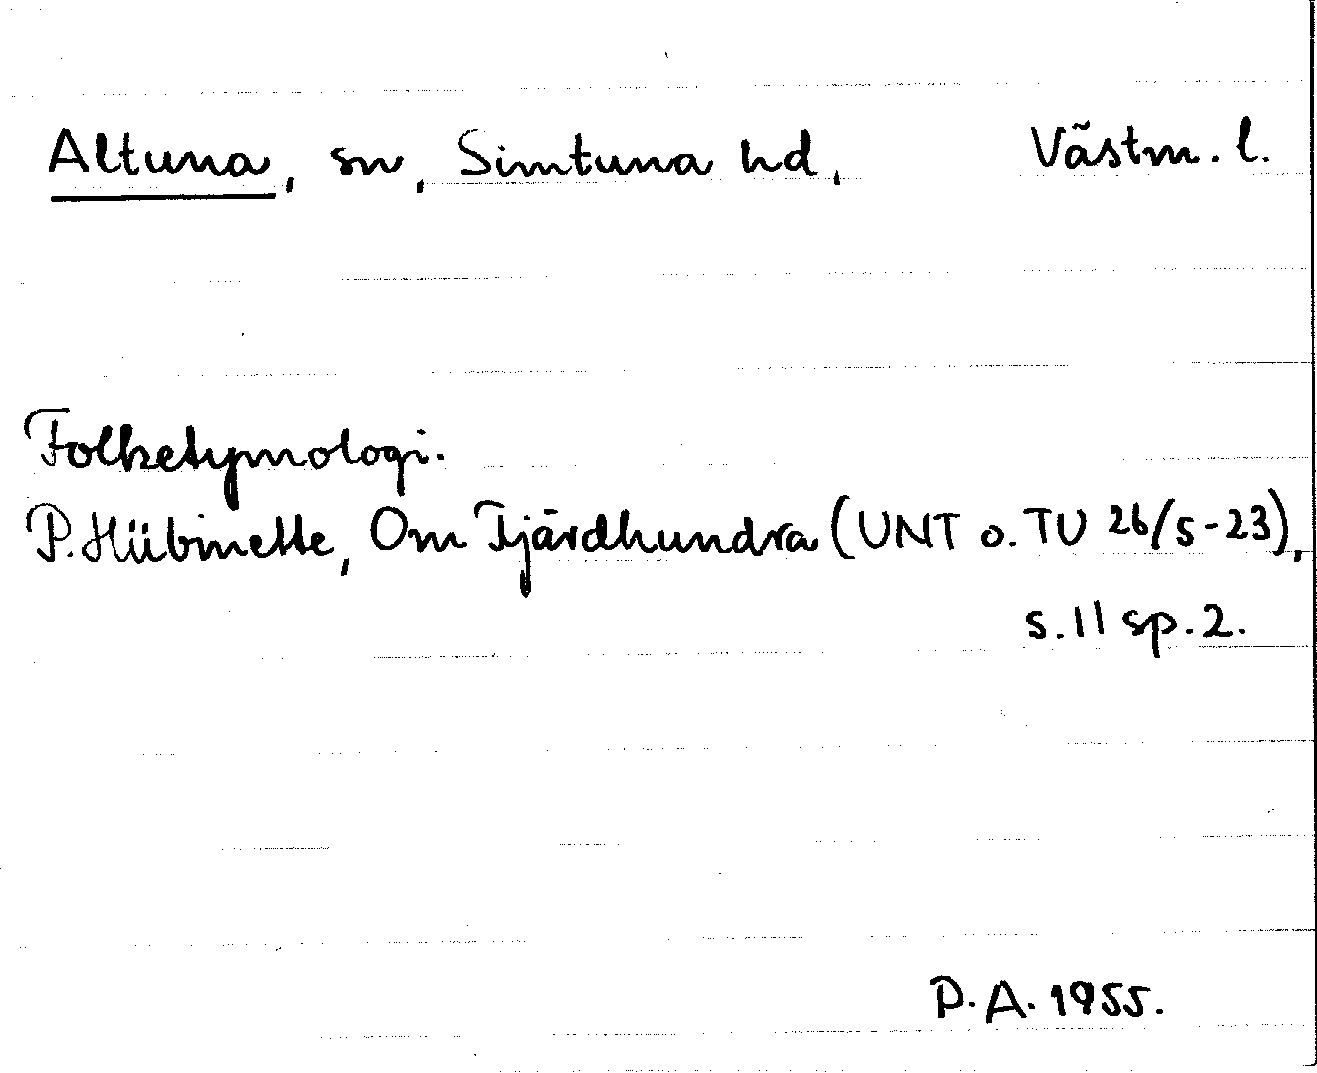 Altuna, sn, Simtuna hd, Västm. l.
Folketymologi.
P. Hübinette, Om Tjärdhundra (UNT o. TU 26/5-23),
s. 11 sp. 2.
P. A. 1955.